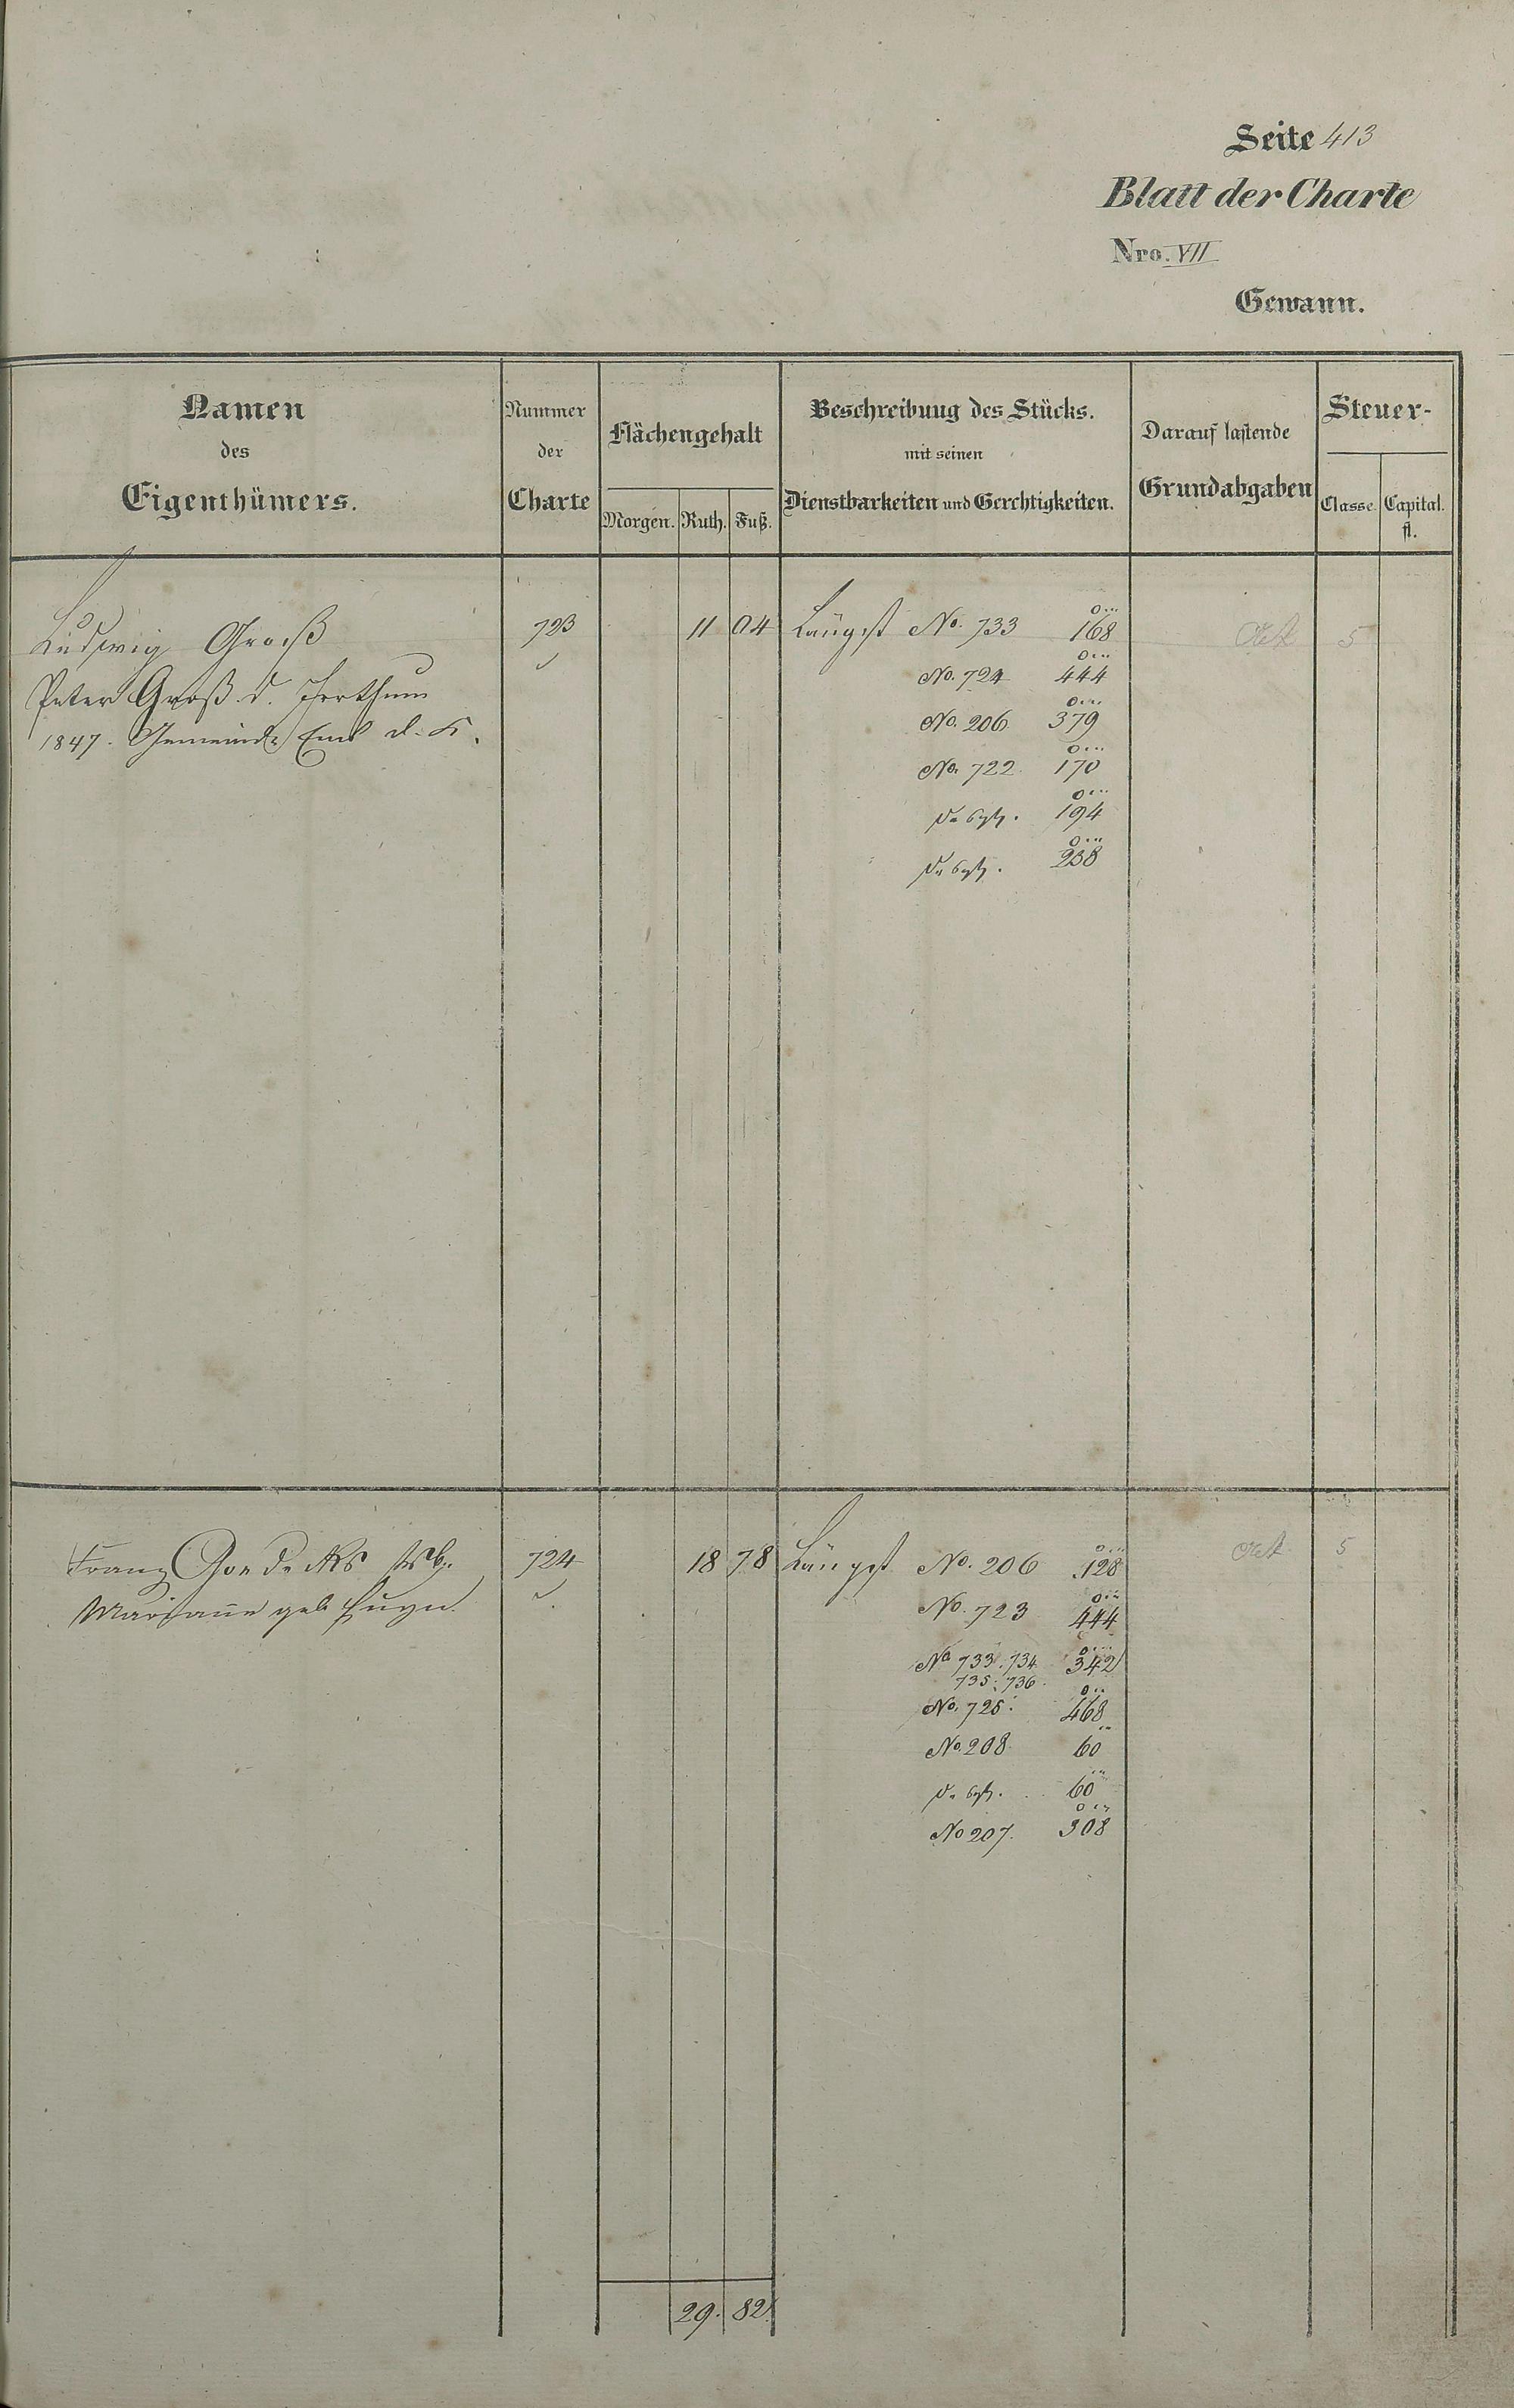 Seite 413
Blatt der Charte
Nro. VII
Gewann.
Namen des Eigenthümers.
Nummer der Charte
Flächengehalt
Morgen. Ruth. Fuß.
Beschreibung des Stücks. mit seinen Dienstbarkeiten und Gerechtigkeiten.
Darauf lastende Grundabgaben
Steuer-
Classe. Capital. fl.
Ludwig Groß 723 11 04 Längst No. 733 168 5
Peter Groß d. Irrthum No. 724 444
1847. Gemeinde Ems No. 206 379
No. 722 170
desgl. 194
desgl. 238
Franz 724 18 78 Längst No. 206 128 5
geb. No. 723 444
No 733. 734 342
735. 736
No. 725. 468
No. 208 60
desgl. 60
No 207. 308
29. 82